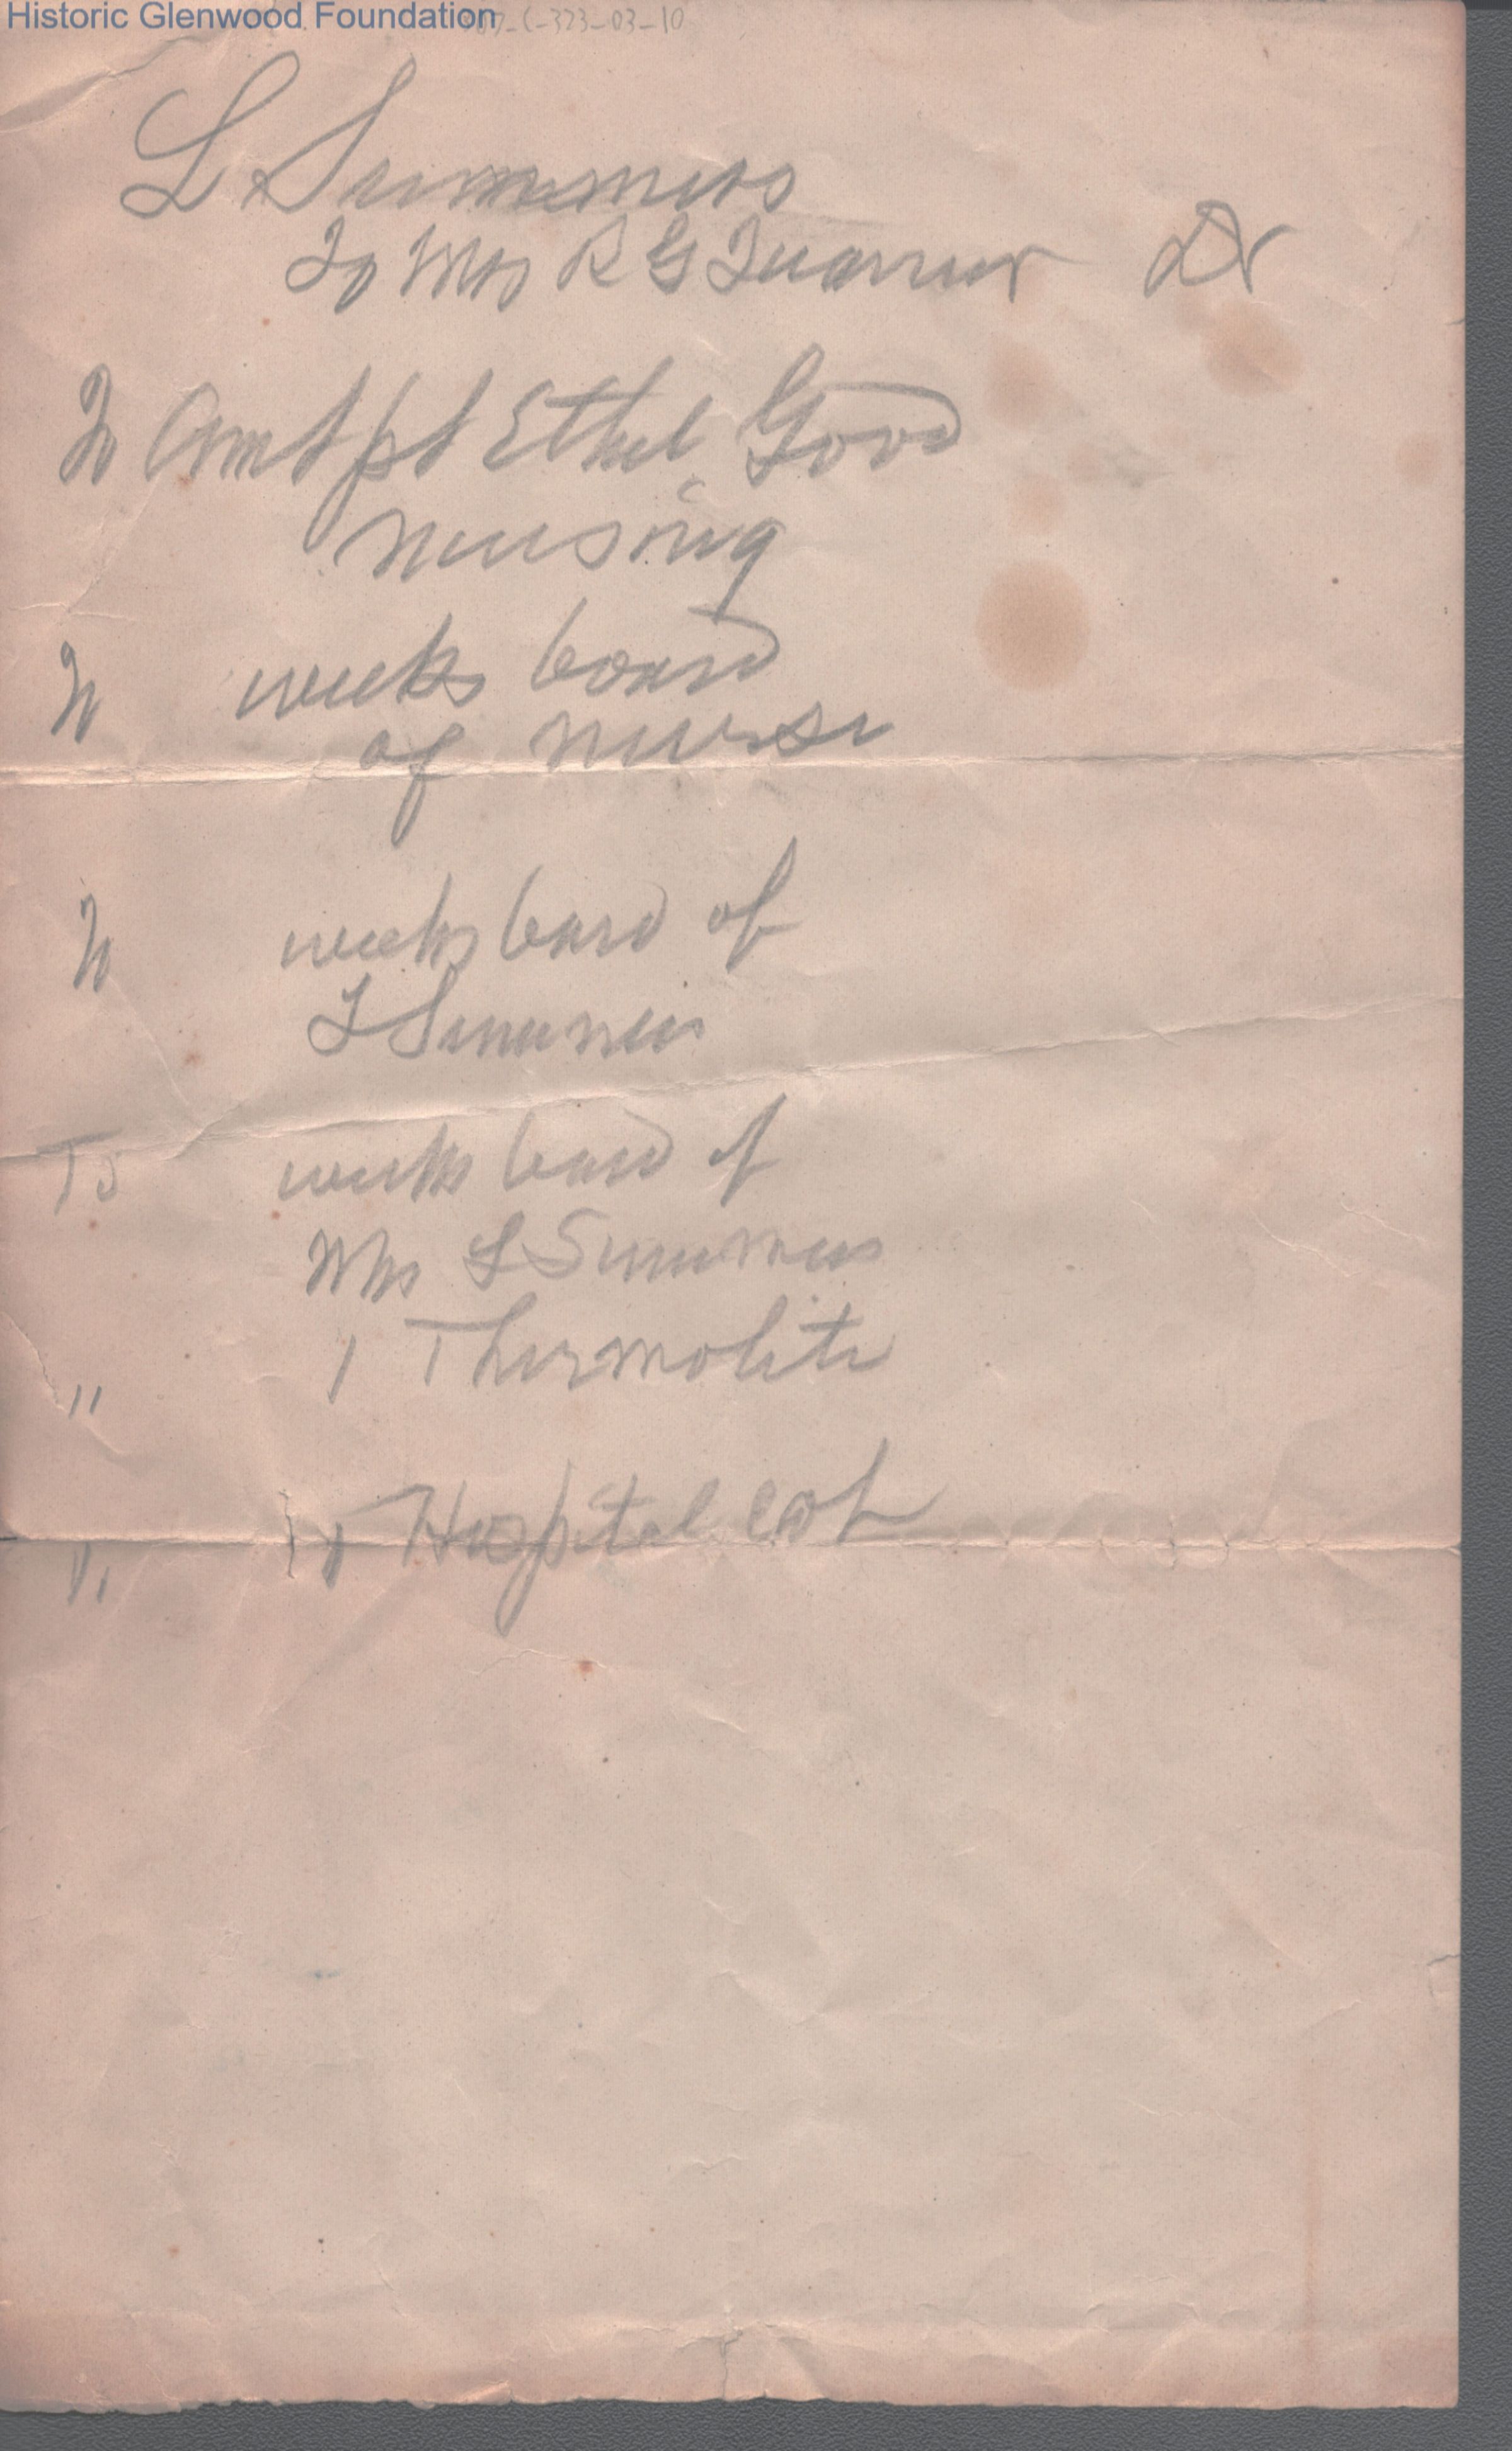 Historic Glenwood Foundation
-C-323-03-10
L Summers
To Mrs R G Quarrier Dr
To Amt pd Ethel Good
nursing
To weeks board
of nurse
To weeks board of
L Summers
To weeks board of
Mrs L Summers
" 1 Thermolite
" 1 Hospital cot